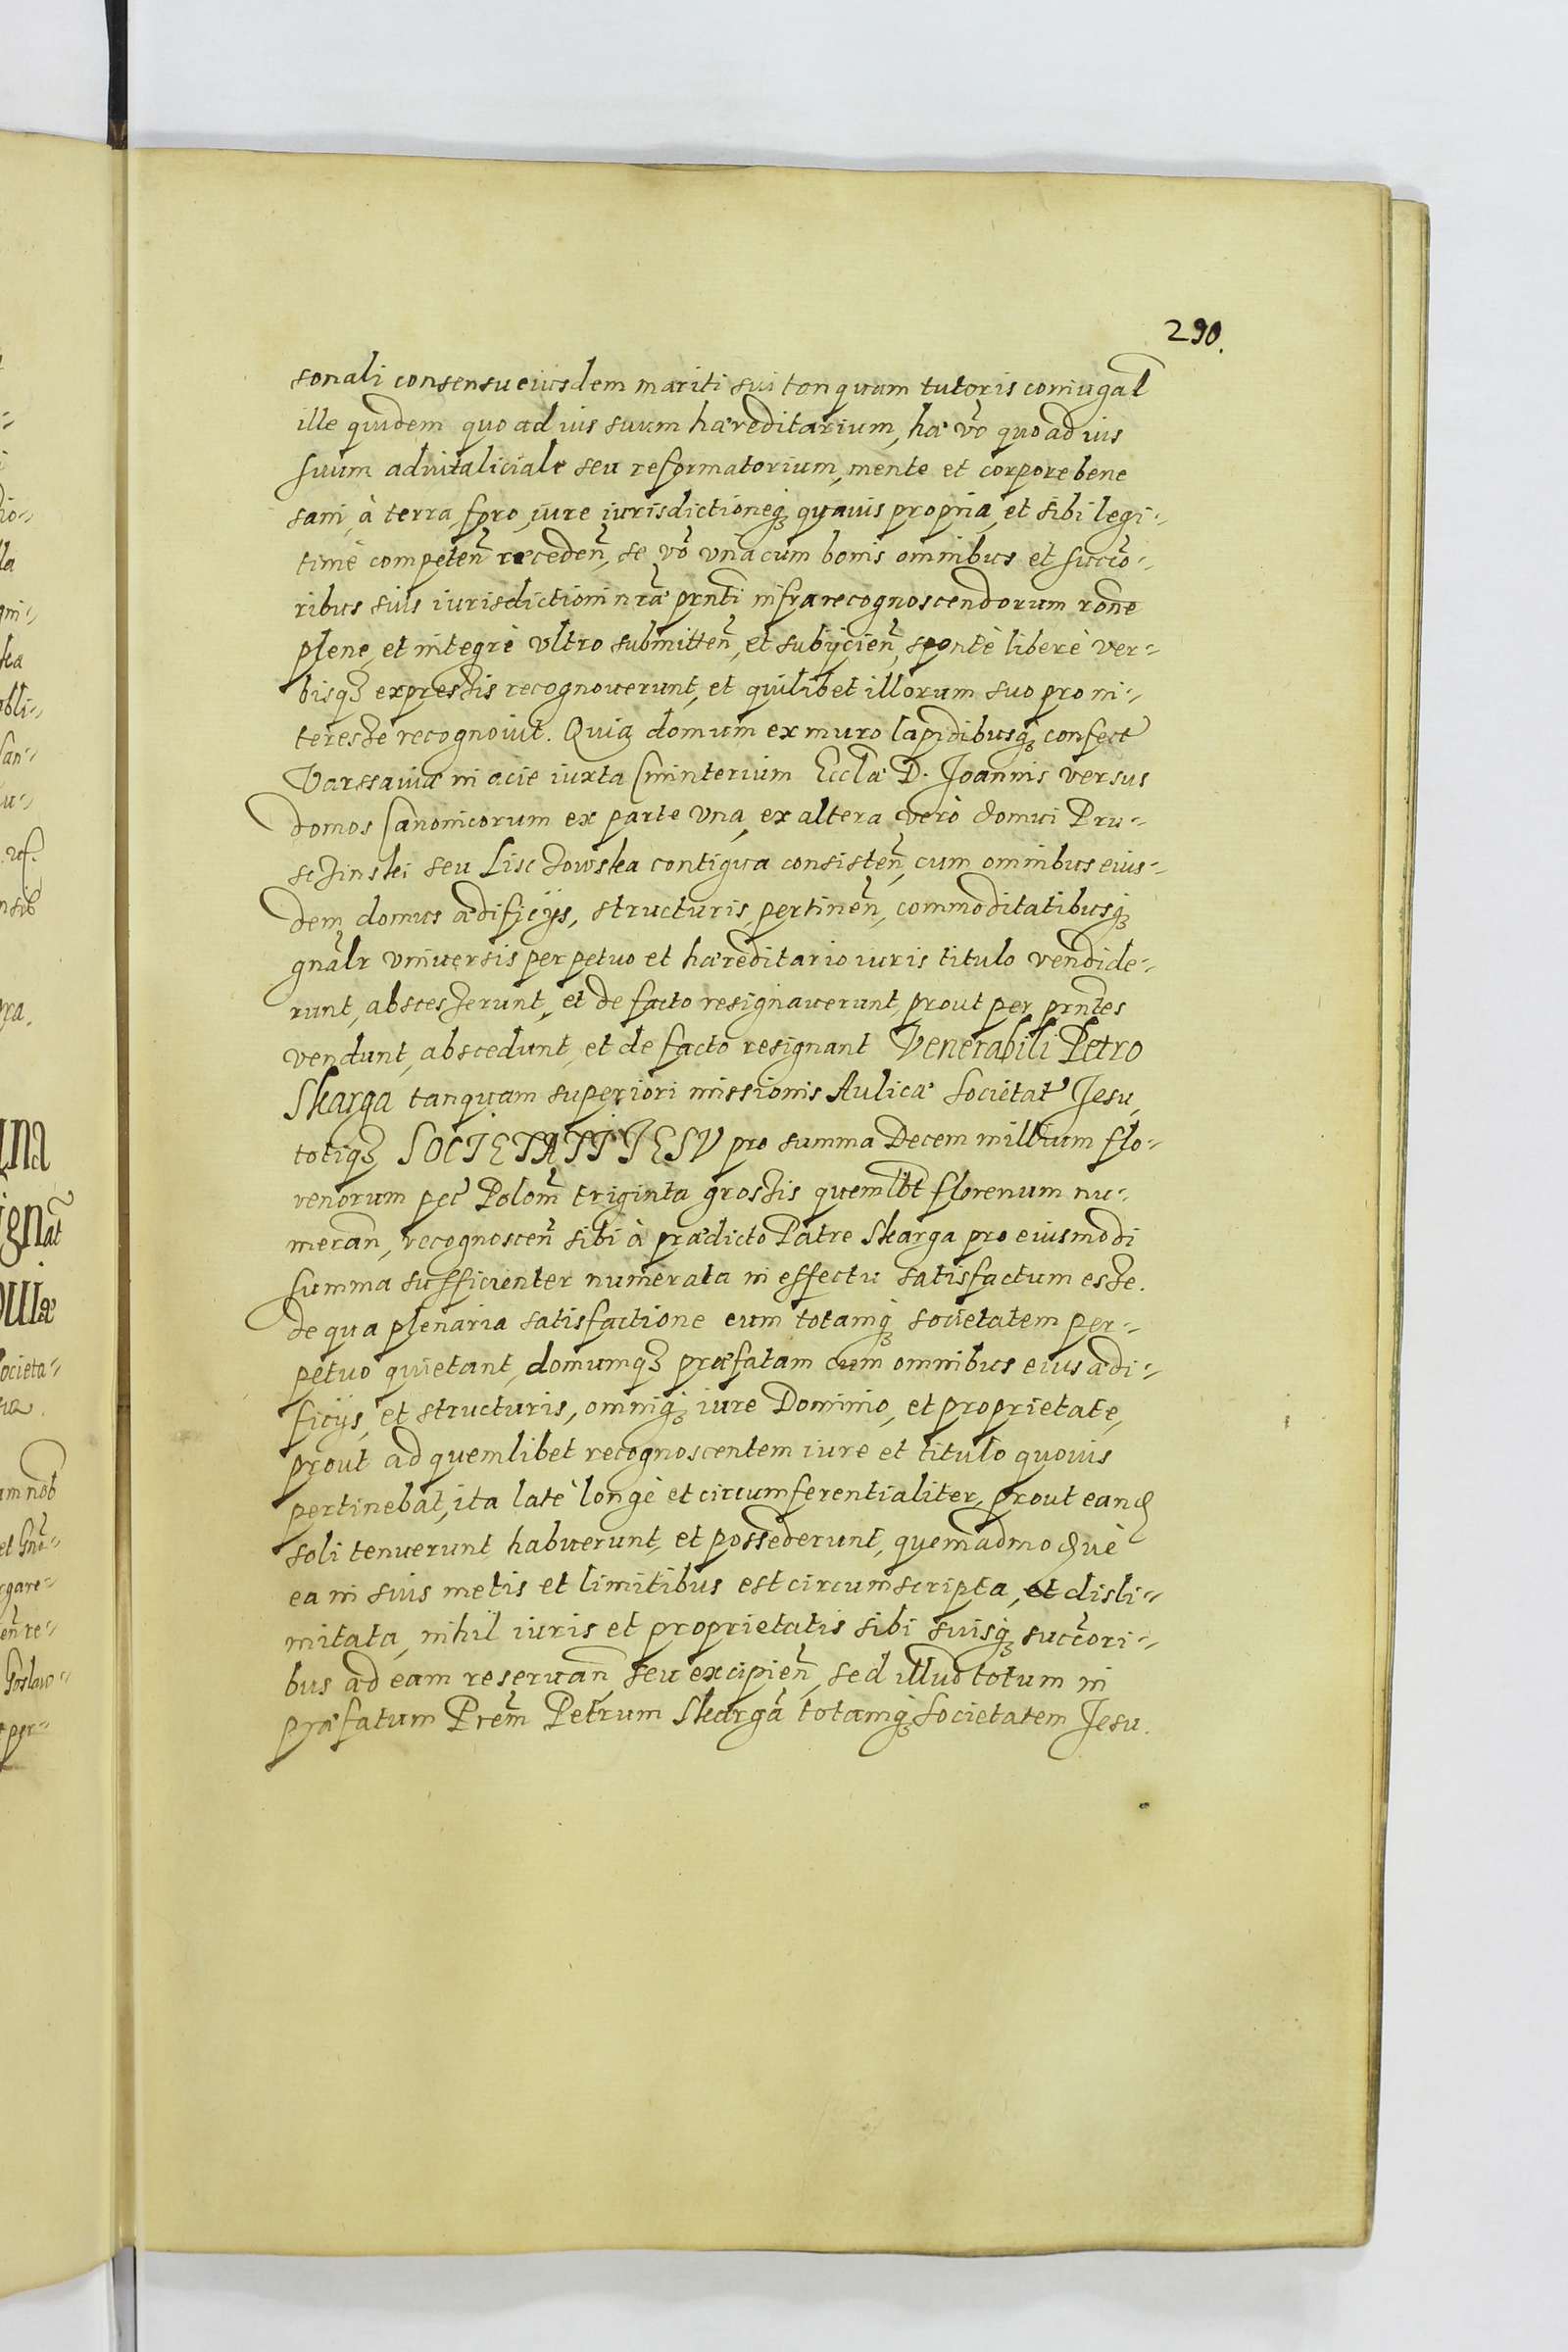 290.
sonali consensu eiusdem mariti sui tanquam tutoris coniugal
ille quidem quo ad ius suum hæreditarium, hæ vo᷃ quo ad ius
suum aduitaliciale seu reformatorium, mente et corpore bene
sani, à terra, foro, iure iurisdictioneqꝫ quauis propria et sibi legi-
timè competen᷃ receden᷃, se vo᷃ vna cum bonis omnibus et succo᷃-
ribus suis iurisdictioni nr᷃æ prn᷃ti infrarecognoscendorum ro᷃ne
plene, et integrè vltro submitten᷃, et subijcien᷃, spontè liberè ver-
bisqꝫ expressis recognouerunt, et quilibet illorum suo pro in-
teresse recognouit. Quia domum ex muro lapidibusqꝫ confect
Varssauiæ in acie iuxta Cminterium Eccl᷃æ D. Joannis versus
domos Canonicorum ex parte vna, ex altera verò domui Pru-
sczinski seu Lisczowska contigua consisten᷃, cum omnibus eius-
dem domus ædificijs, structuris, pertinen᷃, commoditatibusqꝫ
gn᷃alr vniuersis perpetuo et hæreditario iuris titulo vendide-
runt, abscesserunt, et de facto resignauerunt, prout per prn᷃tes
vendunt, abscedunt, et de facto resignant Venerabili Petro
Skarga tanquam superiori missionis Aulicæ Societat Jesu,
totiqꝫ SOCIETATI IESV pro summa Decem millium flo-
renorum pec᷃ Polom᷃ triginta grossis quemlbt᷃ florenum nu-
meran᷃, recognoscen᷃ sibi à prædicto Patre Skarga pro eiusmodi
summa sufficienter numerata in effectu satisfactum esse.
de qua plenaria satisfactione eum totamqꝫ societatem per-
petuo quietant, domumqꝫ præfatam cum omnibus eius ædi-
ficijs, et structuris, omniqꝫ iure Dominio, et proprietate,
prout ad quemlibet recognoscentem iure et titulo quouis
pertinebat, ita latè longè et circumferentialiter, prout eand
soli tenuerunt habuerunt, et possederunt, quemadmoduè
ea in suis metis et limitibus est circumscripta, et disli-
mitata, nihil iuris et proprietatis sibi suisqꝫ succo᷃ri-
bus ad eam reseruan᷃ seu excipien᷃, sed illud totum in
præfatum Prem᷃ Petrum Skarga᷃ totamqꝫ Societatem Jesu.